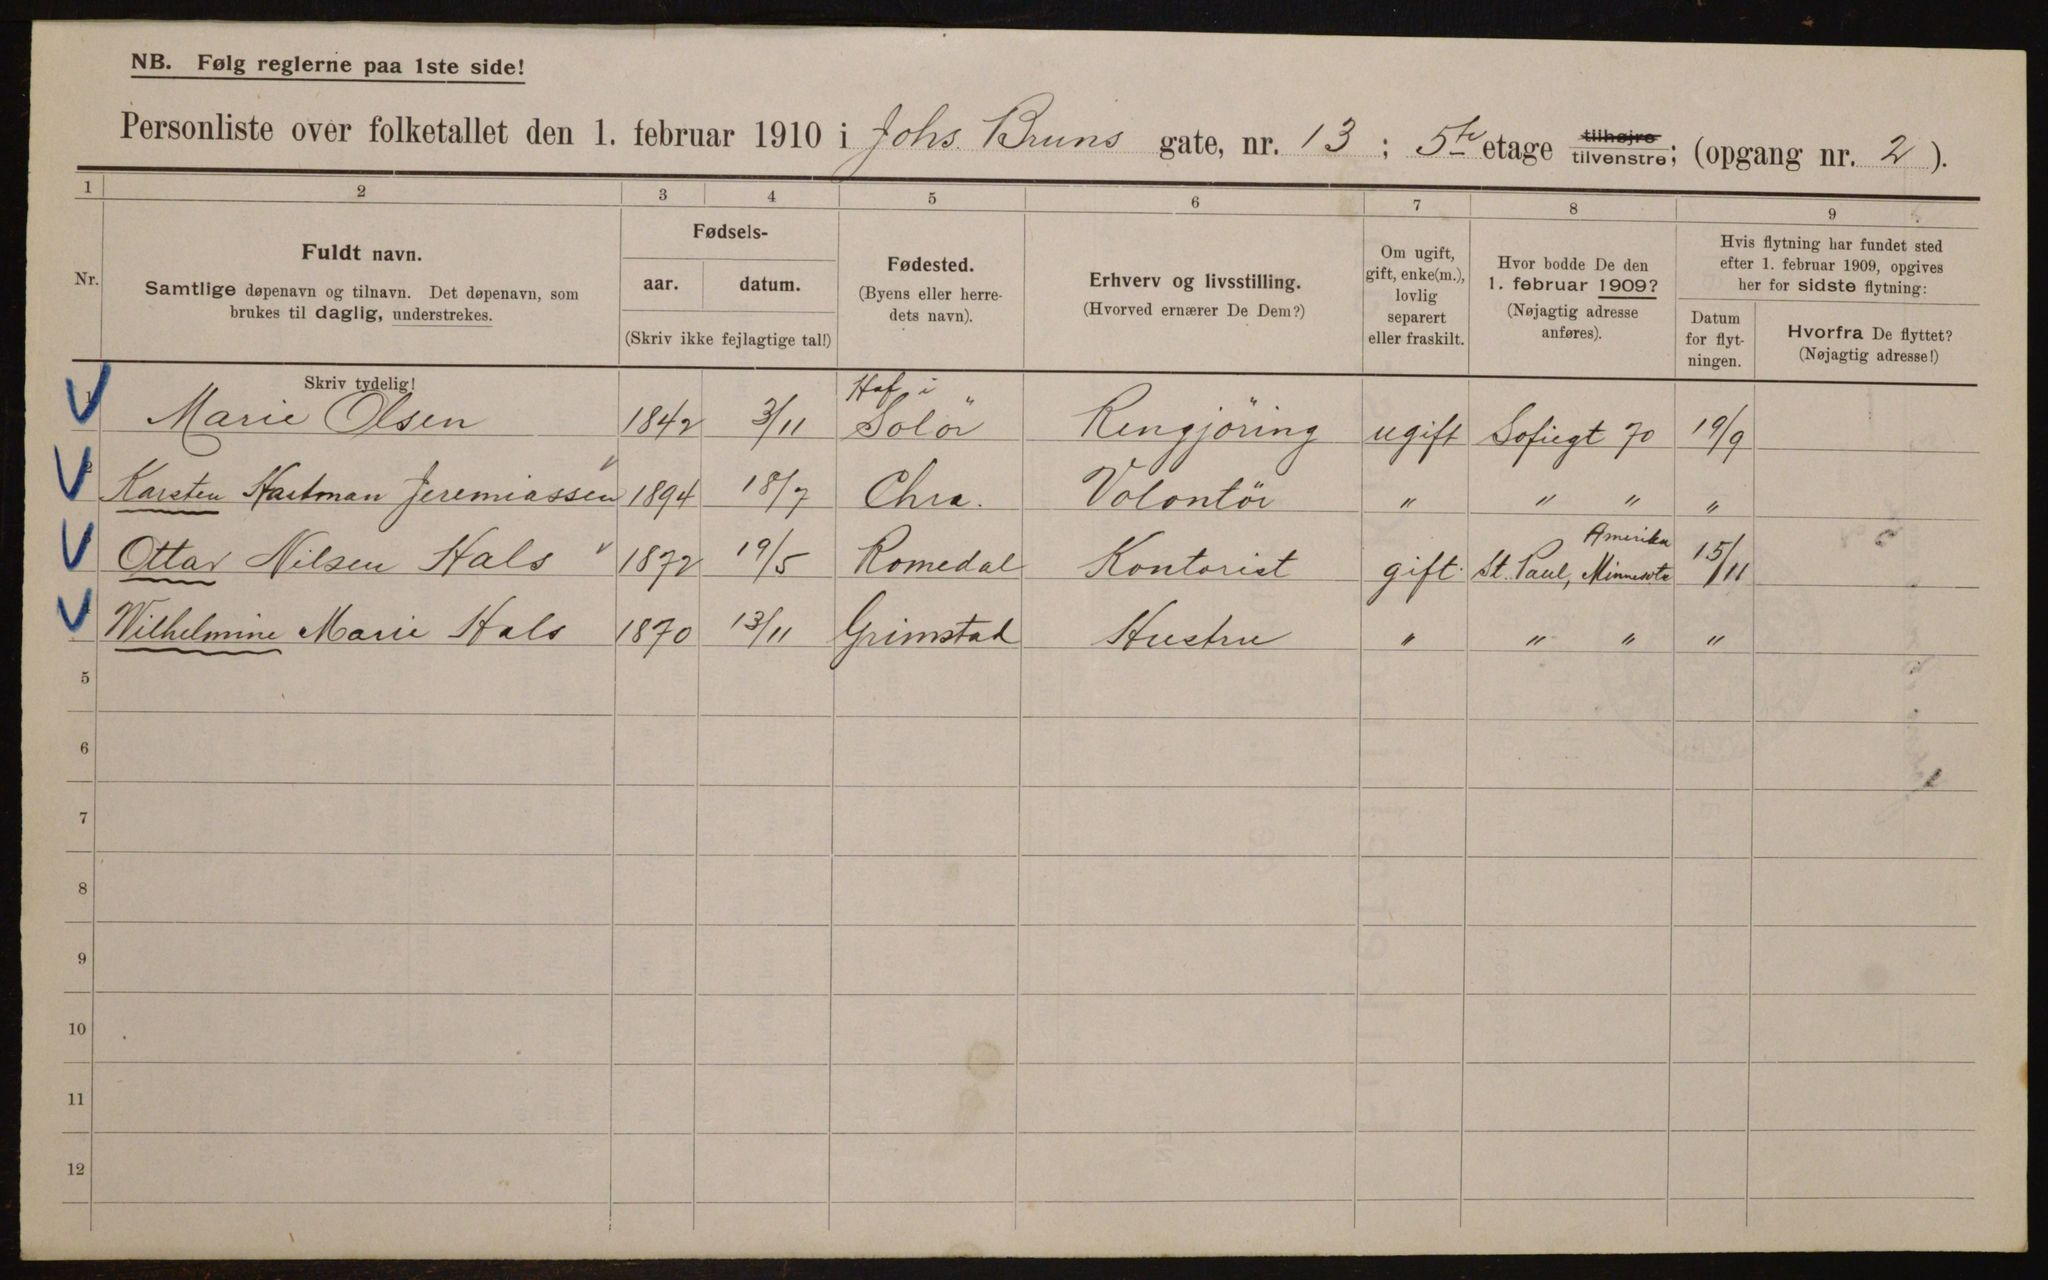 NB. Følg reglerne paa 1ste side!
Personliste over folketallet den 1. februar 1910 i Johs. Bruns gate, nr. 13 ; 5te etage tilhøjre tilvenstre; (opgang nr. 2 ).
1 2 3 4 5 6 7 8 9
Nr.
Fuldt navn.
Samtlige døpenavn og tilnavn. Det døpenavn, som
brukes til daglig, understrekes.
Skriv tydelig!
Fødsels-
aar. datum.
(Skriv ikke fejlagtige tal!)
Fødested.
(Byens eller herre-
dets navn).
Erhverv og livsstilling.
(Hvorved ernærer De Dem?)
Om ugift,
gift, enke(m.),
lovlig
separert
eller fraskilt.
Hvor bodde De den
1. februar 1909?
(Nøjagtig adresse
anføres).
Hvis flytning har fundet sted
efter 1. februar 1909, opgives
her for sidste flytning:
Datum
for flyt-
ningen.
Hvorfra De flyttet?
(Nøjagtig adresse!)
1 Marie Olsen 1842 3/11 Hof i Solör Rengjöring ugift Sofiegt 70 19/9
2 Karsten Hartman Jeremiassen 1894 18/7 Chra. Volontör " " " "
Ottar Nilsen Hals 1872 19/5 Romedal Kontorist gift. St. Paul, Minnesota Amerika 15/11
Wilhelmine Marie Hals 1870 13/11 Grimstad Hustru " " " "
5
6
7
8
9
10
11
12